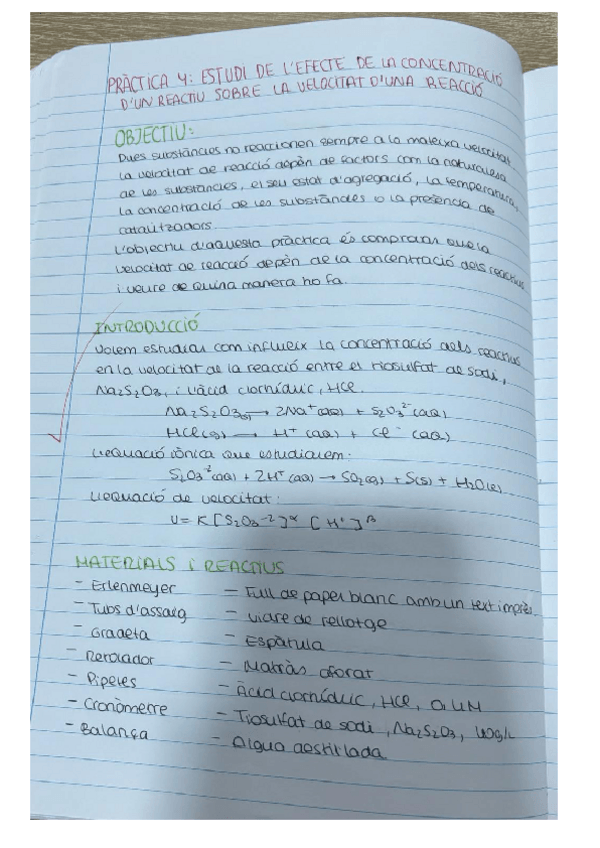 PRÀCTICA 4: ESTUDI DE L'EFECTE DE LA CONCENTRACIÓ
D'UN REACTIU SOBRE LA VELOCITAT D'UNA REACCIÓ
OBJECTIU:
Dues substàncies no reaccionen sempre a la mateixa velocitat
la velocitat de reacció depèn de factors com la naturalesa
de les substàncies, el seu estat d'agregació, la temperatura,
la concentració de les substàncies o la presència de
catalitzadors.
L'objectiu d'aquesta pràctica és comprovar que la
velocitat de reacció depèn de la concentració dels reactius
i veure de quina manera ho fa.
INTRODUCCIÓ
Volem estudiar com influeix la concentració dels reactius
en la velocitat de la reacció entre el tiosulfat de sodi,
Na2S2O3, i l'àcid clorhídric, HCl.
Na2S2O3(s) → 2Na+(aq) + S2O3^2-(aq)
HCl(g) → H+ (aq) + Cl- (aq)
L'equació iònica que estudiarem:
S2O3^-2(aq) + 2H+ (aq) → SO2(g) + S(s) + H2O(l)
L'equació de velocitat:
V = K [S2O3^-2]^α [H+]^β
MATERIALS i REACTIUS
- Erlenmeyer - Full de paper blanc amb un text imprès
- Tubs d'assaig - Vidre de rellotge
- Gradeta - Espàtula
- Retolador - Matràs aforat
- Pipetes - Àcid clorhídric, HCl, 0,1M
- Cronòmetre - Tiosulfat de sodi, Na2S2O3, 40g/L
- Balança - Aigua destil·lada